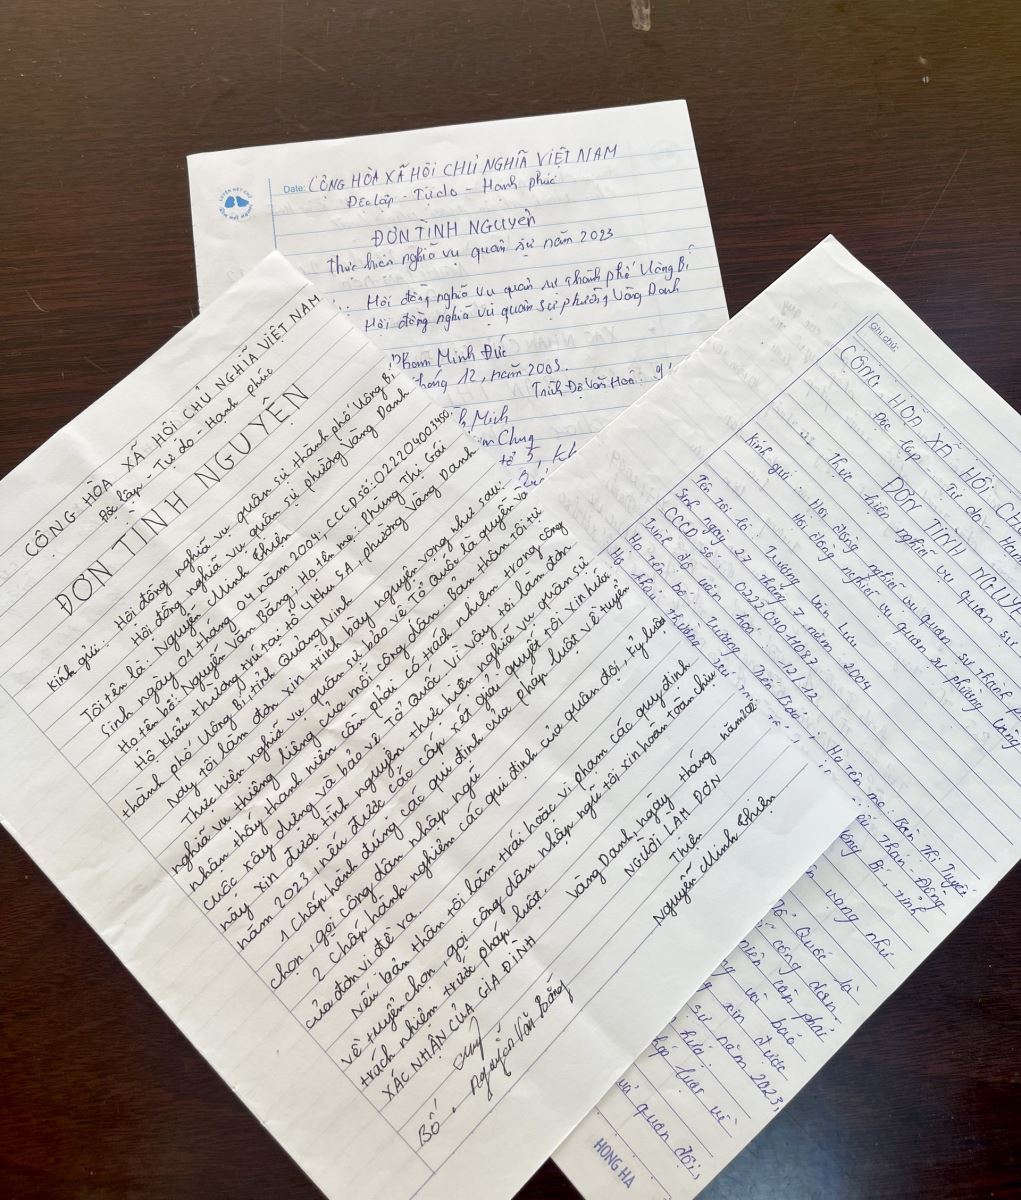 LUYỆN NÉT CHỮ
RÈN NẾT NGƯỜI
Date: CỘNG HÒA XÃ HỘI CHỦ NGHĨA VIỆT NAM
Độc lập - Tự do - Hạnh phúc
ĐƠN TÌNH NGUYỆN
Thực hiện nghĩa vụ quân sự năm 2023
Hội đồng nghĩa vụ quân sự thành phố Uông Bí
Hội đồng nghĩa vụ quân sự phường Vàng Danh
Phạm Minh Đức
tháng 12, năm 2003.
Trình Độ Văn Hoá: 9/
h Mich
Chung
tổ 5, kh
CỘNG HÒA XÃ HỘI CHỦ NGHĨA VIỆT NAM
Độc lập - Tự do - Hạnh phúc
ĐƠN TÌNH NGUYỆN
Kính gửi: Hội đồng nghĩa vụ quân sự thành phố Uông Bí
Hội đồng nghĩa vụ quân sự phường Vàng Danh
Tôi tên là: Nguyễn Minh Thiện
Sinh ngày 01 tháng 04 năm 2004; CCCD số: 022204003450.
Họ tên bố: Nguyễn Văn Bằng; Họ tên mẹ: Phùng Thị Gái
Hộ khẩu thường trú tại tổ 4 khu 5A, phường Vàng Danh
thành phố Uông Bí, tỉnh Quảng Ninh
Nay tôi làm đơn xin trình bày nguyện vọng như sau:
Thực hiện nghĩa vụ quân sự bảo vệ Tổ Quốc là quyền và
nghĩa vụ thiêng liêng của mỗi công dân. Bản thân tôi tự
nhận thấy thanh niên cần phải có trách nhiệm trong công
cuộc xây dựng và bảo vệ Tổ Quốc, vì vậy tôi làm đơn
này xin được tình nguyện thực hiện nghĩa vụ quân sự
năm 2023, nếu được các cấp xét giải quyết tôi xin hứa:
1 Chấp hành đúng các qui định của pháp luật về tuyển
chọn, gọi công dân nhập ngũ
2 Chấp hành nghiêm các qui định của quân đội, kỷ luật
của đơn vị đề ra.
Nếu bản thân tôi làm trái hoặc vi phạm các quy định
về tuyển chọn, gọi công dân nhập ngũ tôi xin hoàn toàn chịu
trách nhiệm trước pháp luật.
Vàng Danh, ngày tháng năm 202
XÁC NHẬN CỦA GIA ĐÌNH
NGƯỜI LÀM ĐƠN
Bố.
Thiện
Nguyễn Văn Bằng
Nguyễn Minh Thiện
Ghi chú:
CỘNG HÒA XÃ HỘI CHỦ
Độc lập Tự do Hạnh
ĐƠN TÌNH NGUYỆ
Thực hiện nghĩa vụ quân sự
Kính gửi: Hội đồng nghĩa vụ quân sự thành p
Hội đồng nghĩa vụ quân sự phường Vàng
Tên tôi là: Trương Văn Lưu
Sinh ngày 27 tháng 7 năm 2004
CCCD số: 022204011087
Trình độ văn hoá: 12/12
Họ tên bố: Trương Tiến Bảo; Họ tên mẹ: Bàn Thị Tuyết
Hộ khẩu thường trú:
Than - Đồng
ông Bí, tỉnh
vọng như
Tổ Quốc là
công dân
niên cần phải
và bảo
xin được
sự năm 2023,
hứa:
pháp luật về
quân đội,
HONG HA